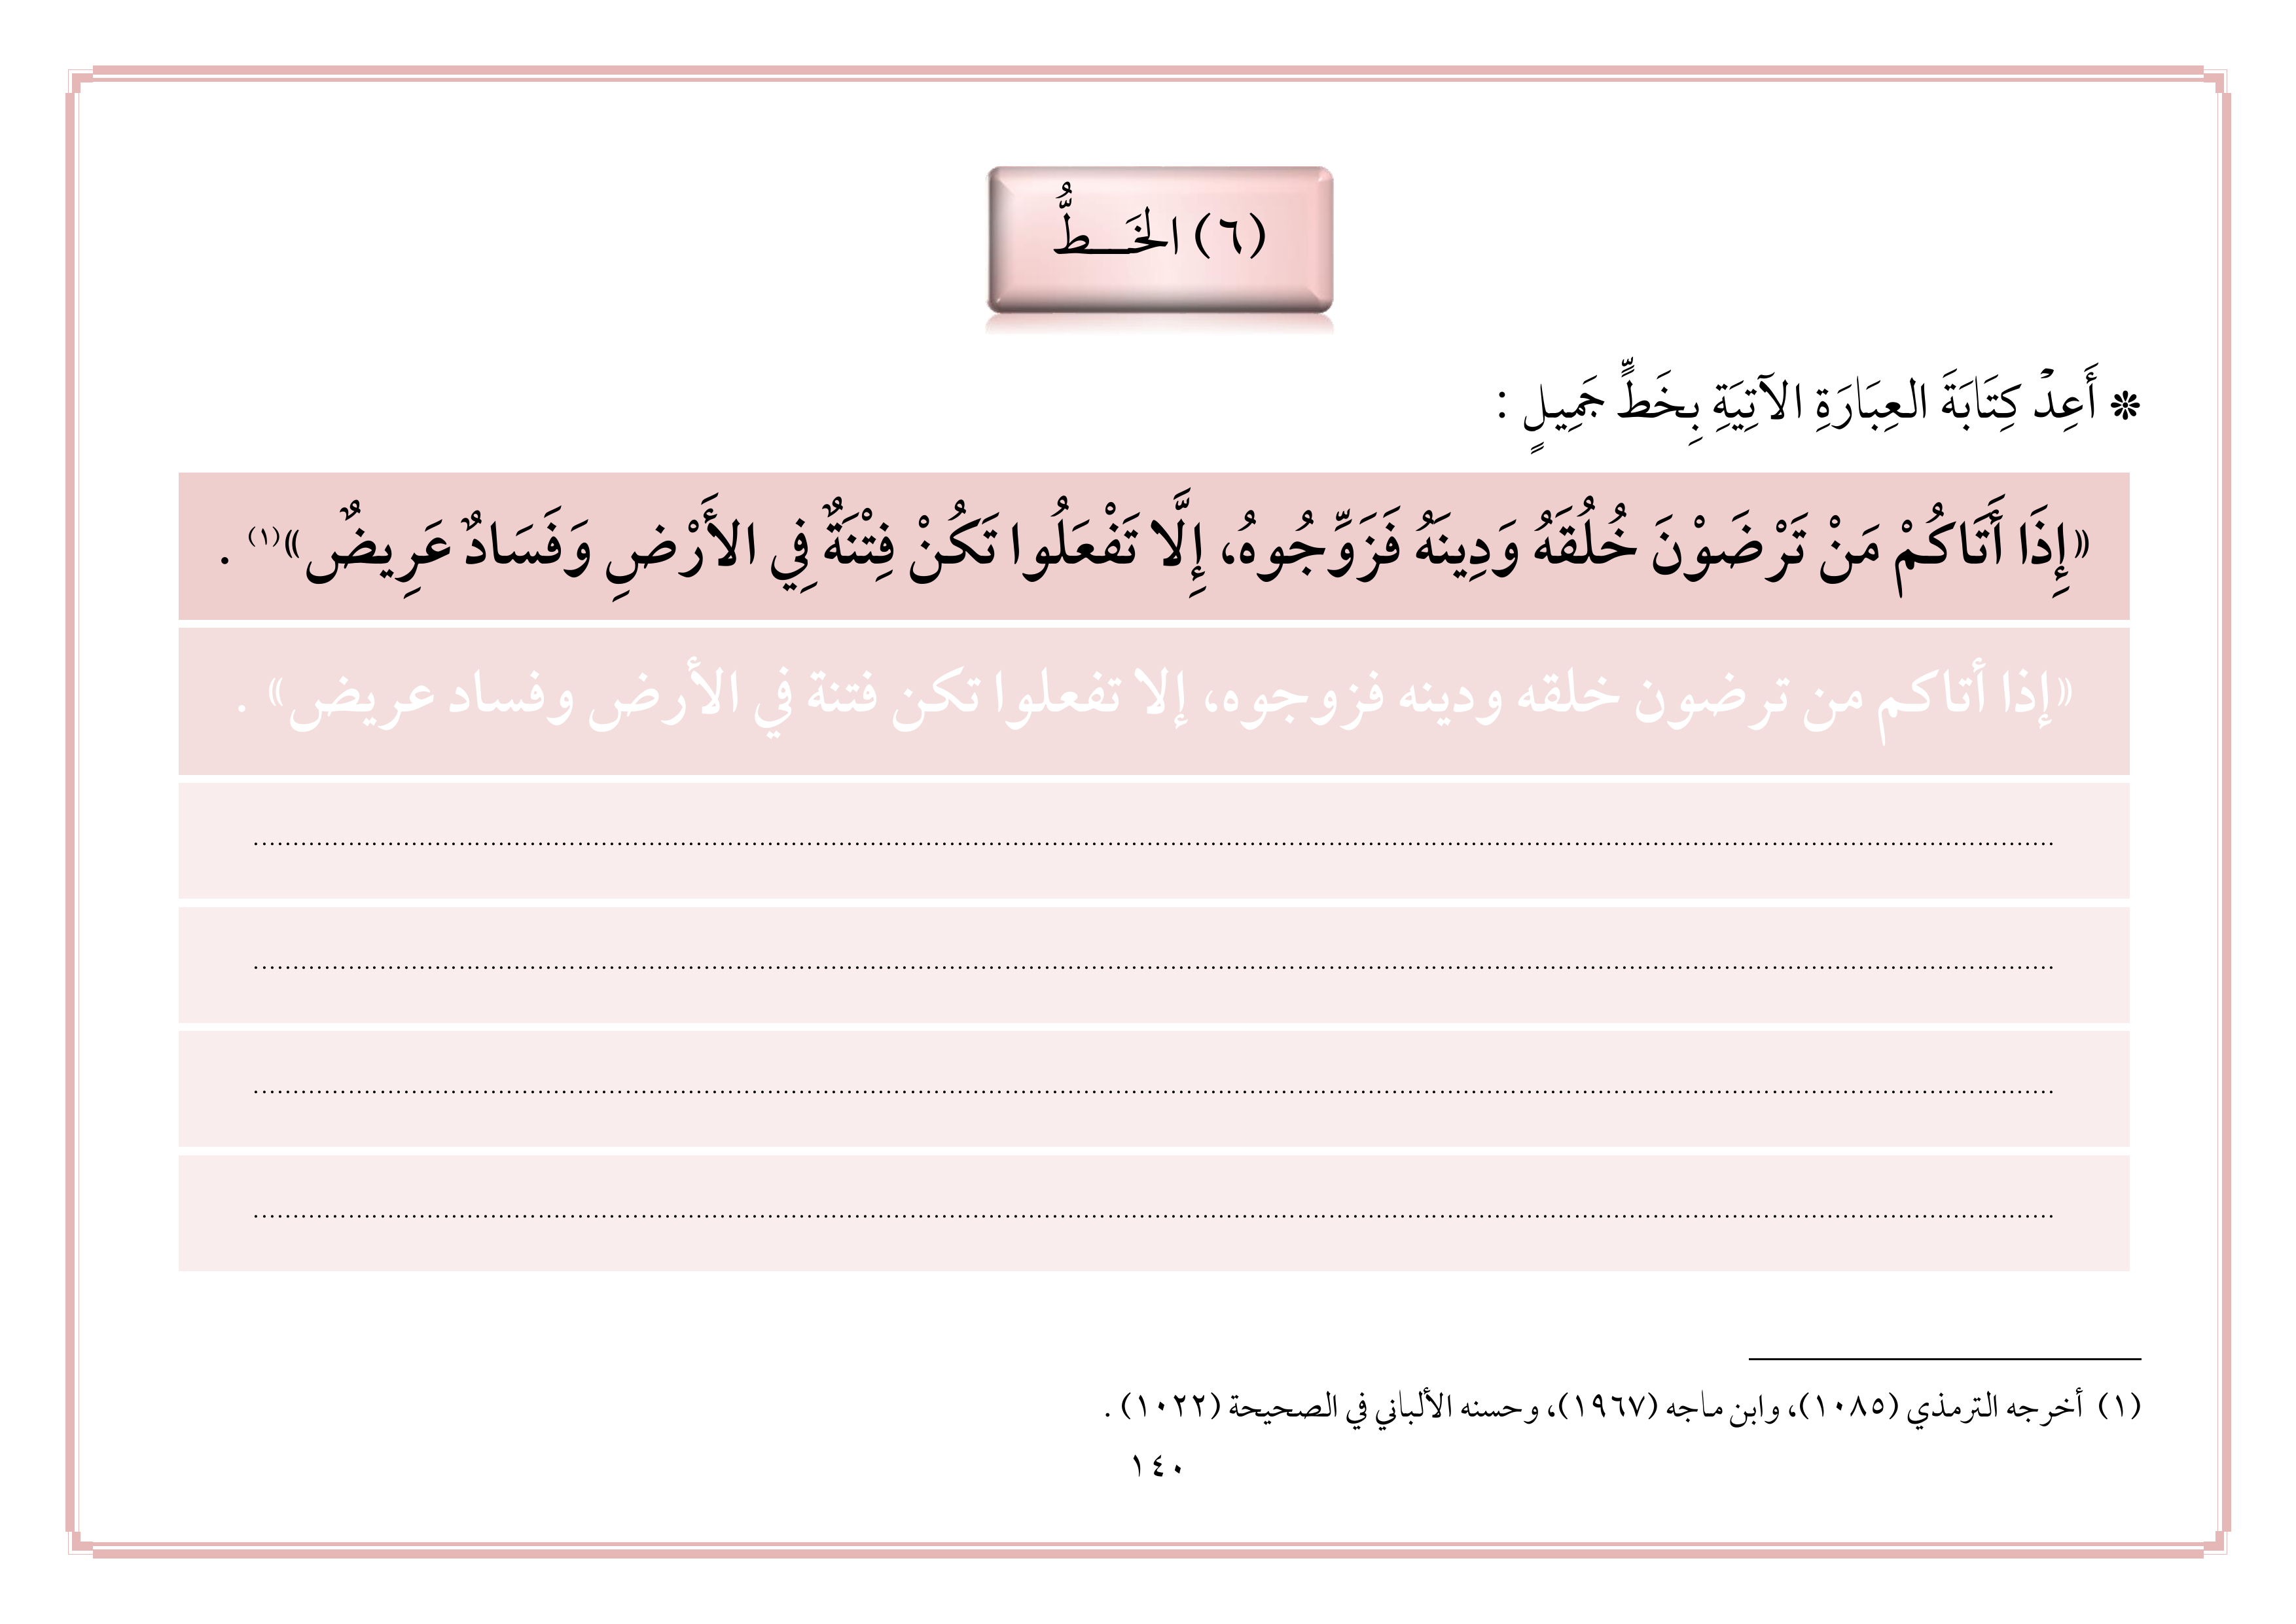 (٦) الخَـــطُّ
❊ أَعِدْ كِتَابَةَ العِبَارَةِ الآتِيَةِ بِخَطٍّ جَمِيلٍ :
«إِذَا أَتَاكُمْ مَنْ تَرْضَوْنَ خُلُقَهُ وَدِينَهُ فَزَوِّجُوهُ، إِلَّا تَفْعَلُوا تَكُنْ فِتْنَةٌ فِي الأَرْضِ وَفَسَادٌ عَرِيضٌ»(١) .
«إذا أتاكم من ترضون خلقه ودينه فزوجوه، إلا تفعلوا تكن فتنة في الأرض وفساد عريض» .
(١) أخرجه الترمذي (١٠٨٥)، وابن ماجه (١٩٦٧)، وحسنه الألباني في الصحيحة (١٠٢٢) .
١٤٠